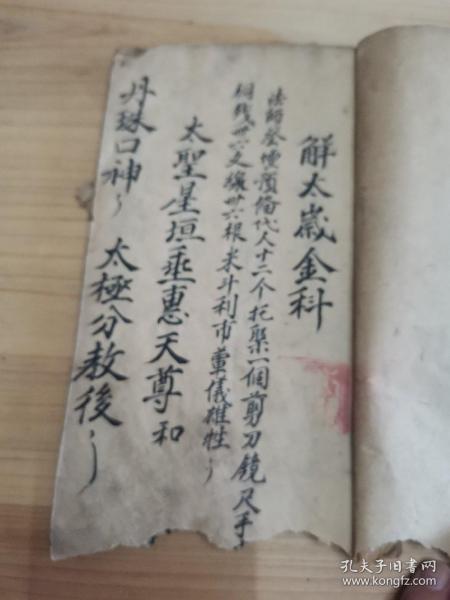 解太歲金科
法師登壇預俻代人十二个托盤一個剪刀鏡尺手
銅錢卅六文線卅六根米斗利市葷儀雄牲
太聖星垣垂惠天尊和
丹珠口神 太極分教後
孔夫子旧书网
www.kongfz.com